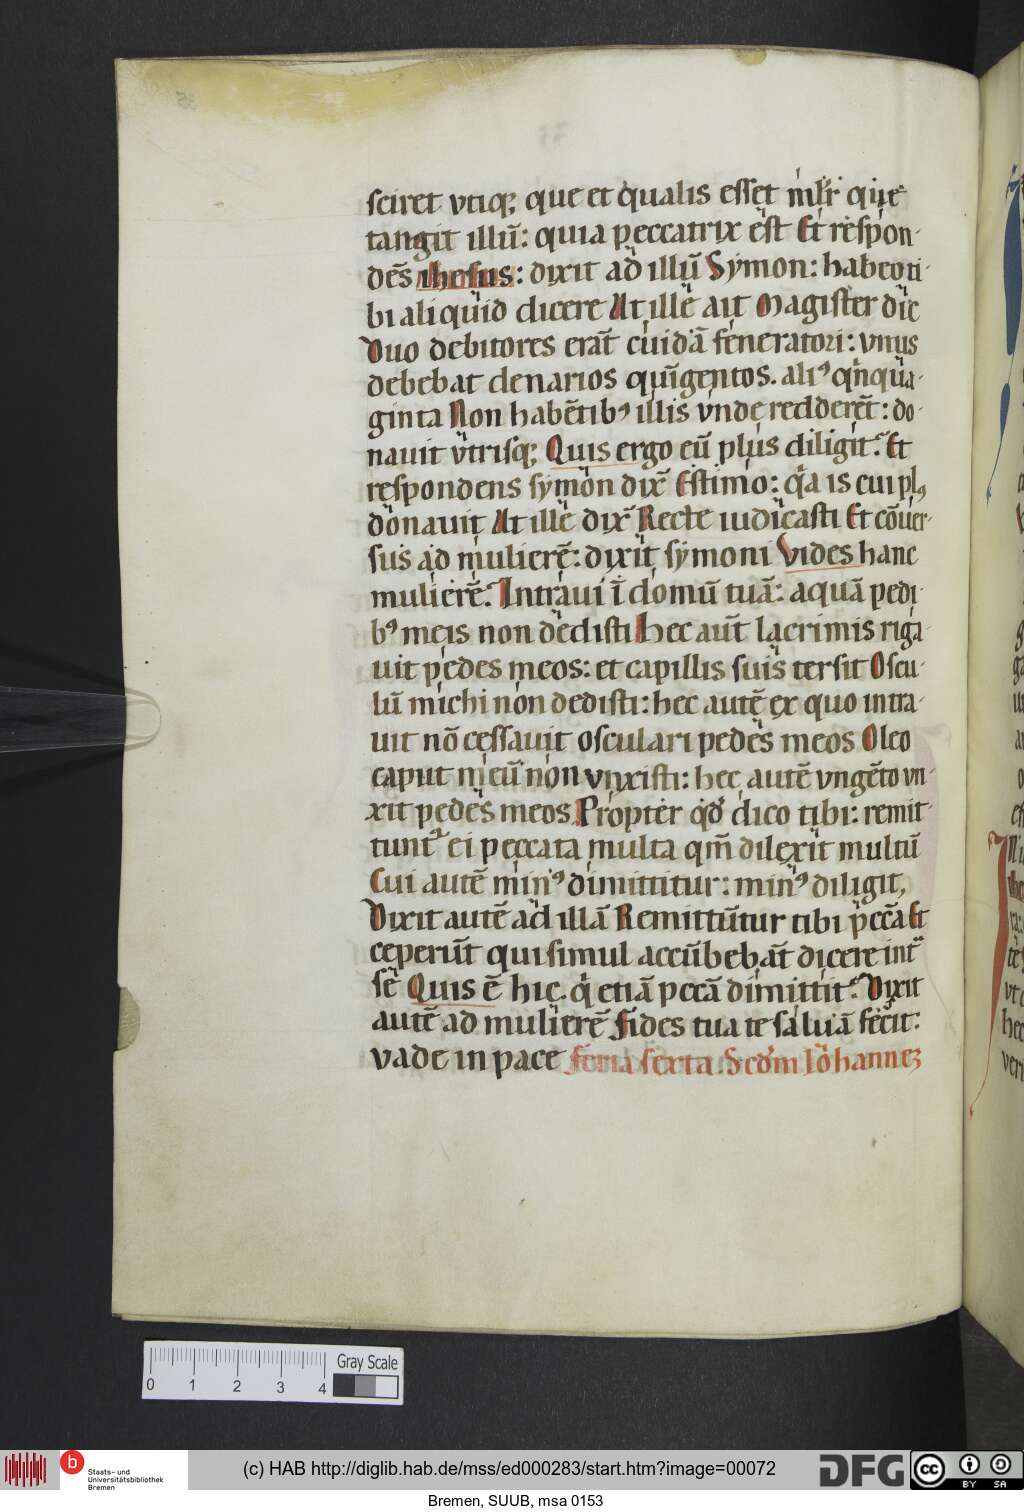 sciret vtiqꝫ que et qualis esset mlr̄ que
tangit illū: quia peccatrix est Et respon-
dēs ihesus: dixit ad illū Symon: habeo ti-
bi aliquid dicere At ille ait Magister dic
Duo debitores erāt cuidā feneratori: vnus
debebat denarios quīgentos. aliꝰ qīnqua-
ginta Non habētibꝰ illis vnde redderēt: do-
nauit vtrisqꝫ Quis ergo eū plus diligit. Et
respondens symon dix̄ Estimo: qͥa is cui plꝰ
donauit At ille dix̄ Recte iudicasti Et cōuer-
sus ad mulierē: dixit symoni Vides hanc
mulierē. Intraui ī domū tuā: aquā pedi-
bꝰ meis non dedisti Hec aut̄ lacrimis riga-
uit pedes meos: et capillis suis tersit Oscu-
lū michi non dedisti: hec autē ex quo intra-
uit nō cessauit osculari pedes meos Oleo
caput meū non vnxisti: hec autē vngēto vn-
xit pedes meos Propter qd̕ dico tibi: remit
tunt᷑ ei peccata multa qm̄ dilexit multū
Cui autē minꝰ dimittitur: minꝰ diligit,
Dixit autē ad illā Remittūtur tibi pccā Et
ceperūt qui simul accūbebāt dicere int᷑
se Quis ē hic. qͥ etiā pccā dimittit. Dixit
autē ad mulierē Fides tua te saluā fecit:
vade in pace feria sexta. Scdm Iohannē
0 1 2 3 4
Gray Scale
b
Staats- und
Universitätsbibliothek
Bremen
(c) HAB http://diglib.hab.de/mss/ed000283/start.htm?image=00072
DFG
cc BY SA
Bremen, SUUB, msa 0153